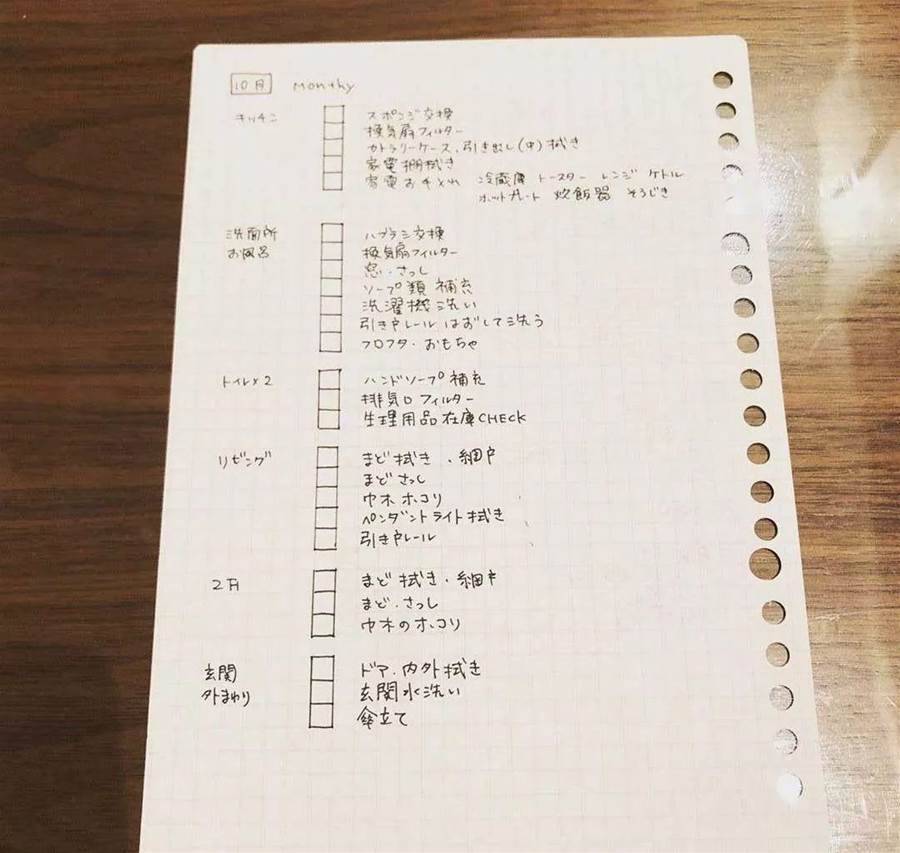 10月 Monthy
キッチン スポンジ交換
換気扇フィルター
カトラリーケース、引き出し(中)拭き
家電棚拭き
家電お手入れ 冷蔵庫 トースター レンジ ケトル
ホットプレート 炊飯器 そうじき
洗面所 ハブラシ交換
お風呂 換気扇フィルター
窓・さっし
ソープ類補充
洗濯機洗い
引き戸レール はずして洗う
フロフタ・おもちゃ
トイレ×2 ハンドソープ補充
排気口フィルター
生理用品在庫CHECK
リビング まど拭き・網戸
まどさっし
巾木ホコリ
ペンダントライト拭き
引き戸レール
2F まど拭き・網戸
まど・さっし
巾木のホコリ
玄関 ドア・内外拭き
外まわり 玄関水洗い
傘立て